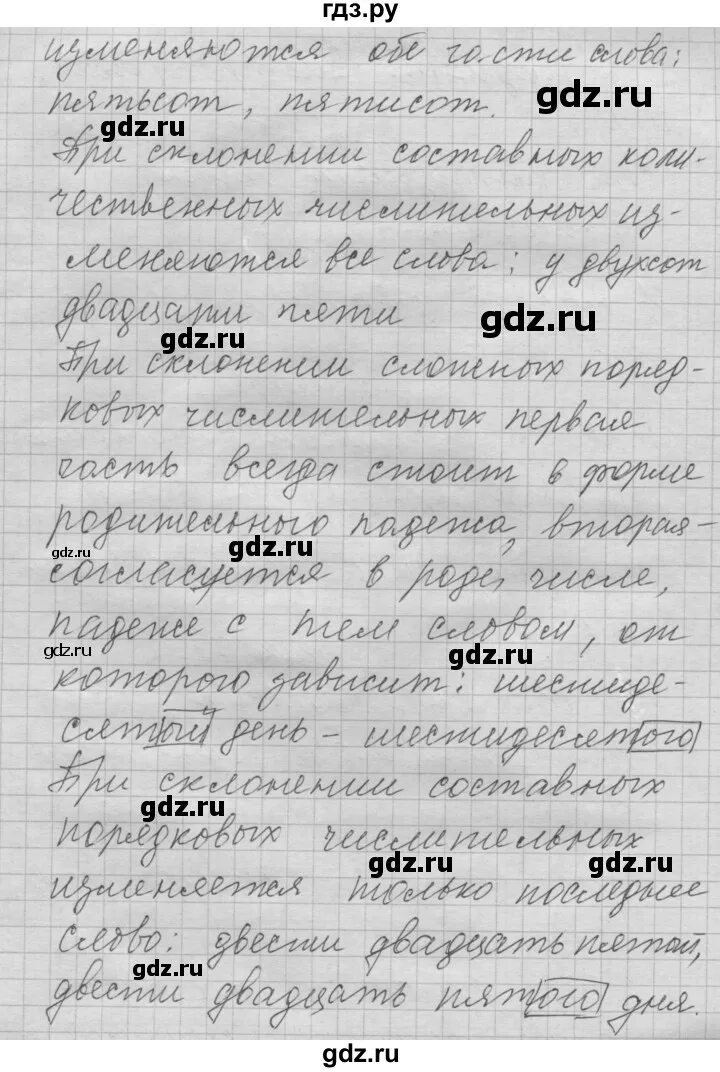 гдз.ру
изменяются обе части слова:
пятьсот, пятисот.
gdz.ru
gdz.ru
При склонении составных коли-
чественных числительных из-
меняются все слова: у двухсот
двадцати пяти
gdz.ru
gdz.ru
При склонении сложных поряд-
ковых числительных первая
gdz.ru
часть всегда стоит в форме
родительного падежа, вторая-
gdz.ru
gdz.ru
согласуется в роде, числе,
падеже с тем словом, от
gdz.ru
gdz.ru
которого зависит: шестиде-
сятый день - шестидесятого
При склонении составных
gdz.ru
порядковых числительных
gdz.ru
gdz.ru
изменяется только последнее
слово: двести двадцать пятый,
gdz.ru
двести двадцать пятого дня.
gdz.ru
gdz.ru